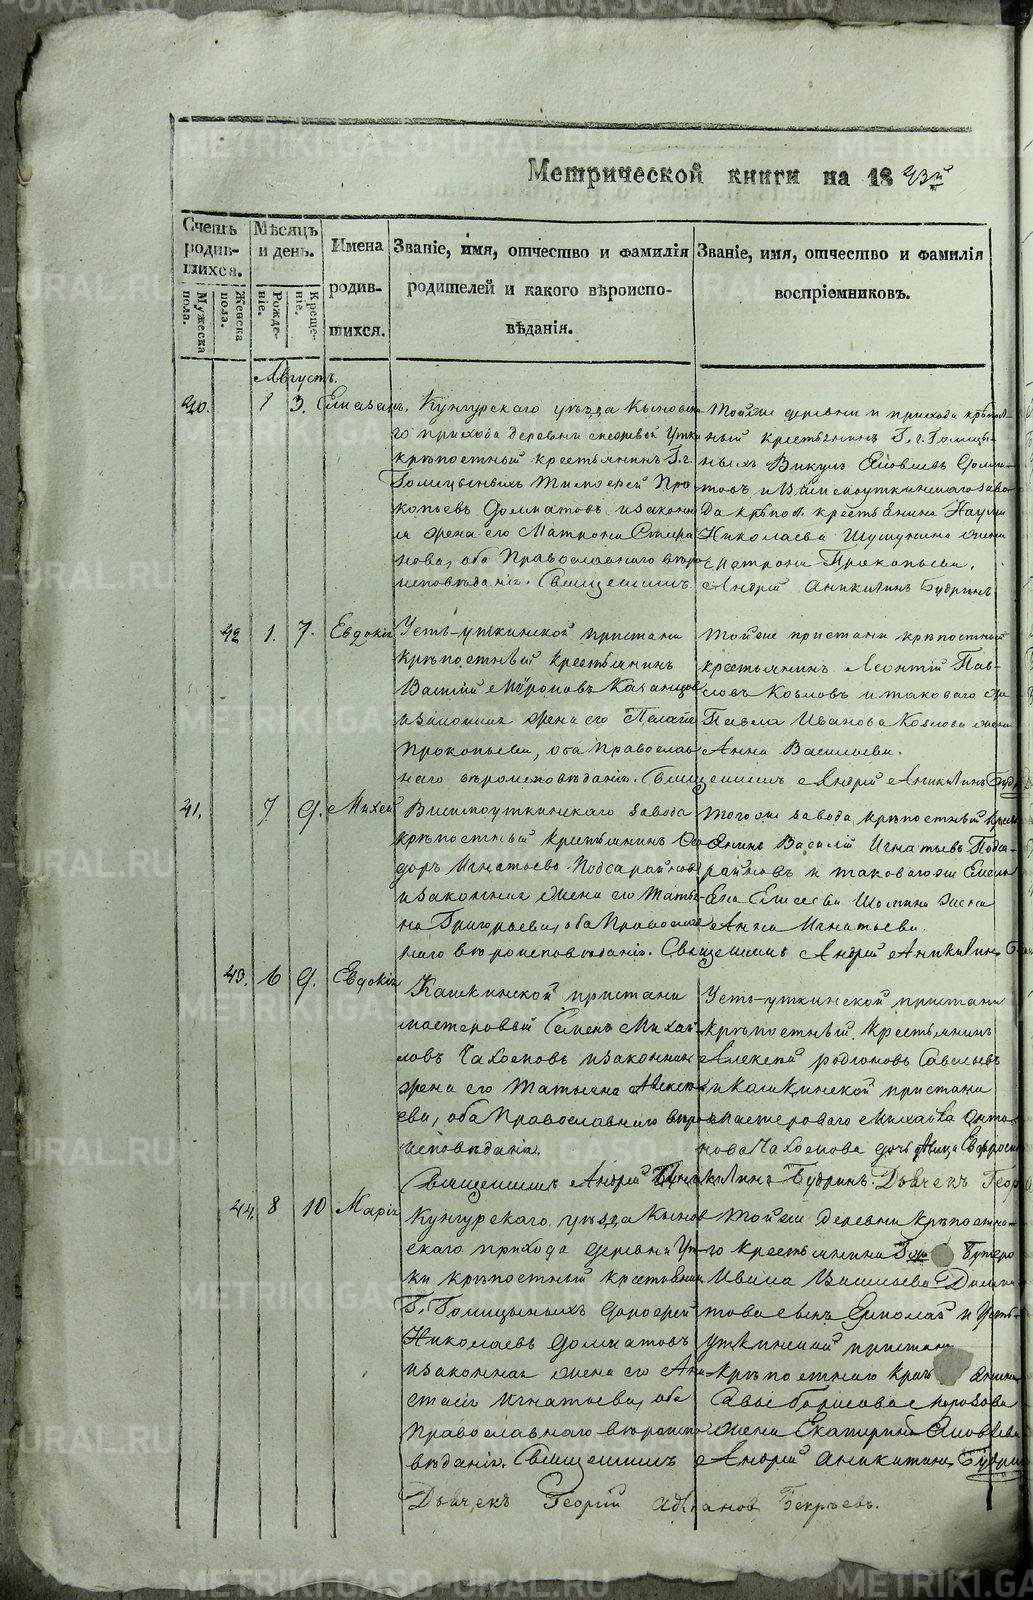 METRIKI.GASO-URAL.RU
Метрической книги на 18
Счетъ родив-шихся.
Мужеска пола.
Женска пола.
Мѣсяцъ и день.
Рожде-ніе.
Креще-ніе.
Имена родив-шихся.
Званіе, имя, отчество и фамилія родителей и какого вѣроиспо-вѣданія.
Званіе, имя, отчество и фамилія воспріемниковъ.
Августъ.
40. 1 3. Елиазаръ.
Кунгурскаго уѣзда Кыновска-
го прихода деревни
крѣпостный крестьянинъ Г. г.
Голицыныхъ Тимофей Про-
копьевъ Долматовъ и закон-
я жена его Матрона
нова, оба Православнаго вѣро-
исповѣданія. Священникъ
Тойже деревни и прихода крѣпост-
ный крестьянинъ Г. г. Голицы-
ныхъ Викулъ Яковлевъ Долма-
товъ и Висимоуткинскаго заво-
да крѣпост. крестьянина Наума
Николаева жена
Матрона Прокопьева.
Андрей Аникитинъ Будринъ
42 1. 7. Евдокія
Усть-уткинской пристани
крѣпостный крестьянинъ
Василій Мѵроновъ Казанцовъ
и законная жена его Пелагія
Прокопьева, оба Православ-
наго вѣроисповѣданія. Священникъ Андрей Аникитинъ
Тойже пристани крѣпостный
крестьянинъ Леонтій Пав-
ловъ Козловъ и таковаго же
Павла Иванова Козлова жена
Анна Васильева.
41. 7 9. Михей
Висимоуткинскаго завода
крѣпостный крестьянинъ Си-
доръ Игнатьевъ Подсарайновъ
и законная жена его Татья-
на Григорьева, оба Православ-
наго вѣроисповѣданія. Священникъ Андрей Аникитинъ
тогоже завода крѣпостный крест-
янинъ Василій Игнатьевъ Подса-
райновъ и таковагоже Емель-
Ена Елисеева жена
Анна Игнатьева.
43. 6 9. Евдокія
Кашкинской пристани
мастеровый Семенъ Михай-
ловъ и законная
жена его Татьяна Алексе-
ева, оба Православнаго вѣро-
исповѣданія.
Усть-уткинской пристани
крѣпостный крестьянинъ
Алексей родіоновъ Савельевъ
и кашкинской пристани
мастероваго Михайла Анто-
нова дочь дѣвица
Священникъ Андрей Аникитинъ Будринъ. Дьячекъ
44. 8 10 Марія
Кунгурскаго уѣзда Кынов-
скаго прихода деревни Ут-
ки крѣпостный крестьянинъ
Г. Голицыныхъ Дорофей
Николаевъ Долматовъ
и законная жена его Ана-
стасія Игнатьева, оба
Православнаго вѣроиспо-
вѣданія. Священникъ
Тойже деревни крѣпостна-
го крестьянина
Ивана Васильева Долма-
това сынъ Ермолай и Усть-
уткинской пристани
крѣпостнаго
Савы борисова морозова
жена Екатерина Яковлева
Андрей Аникитинъ Будринъ
Дьячекъ Георгій